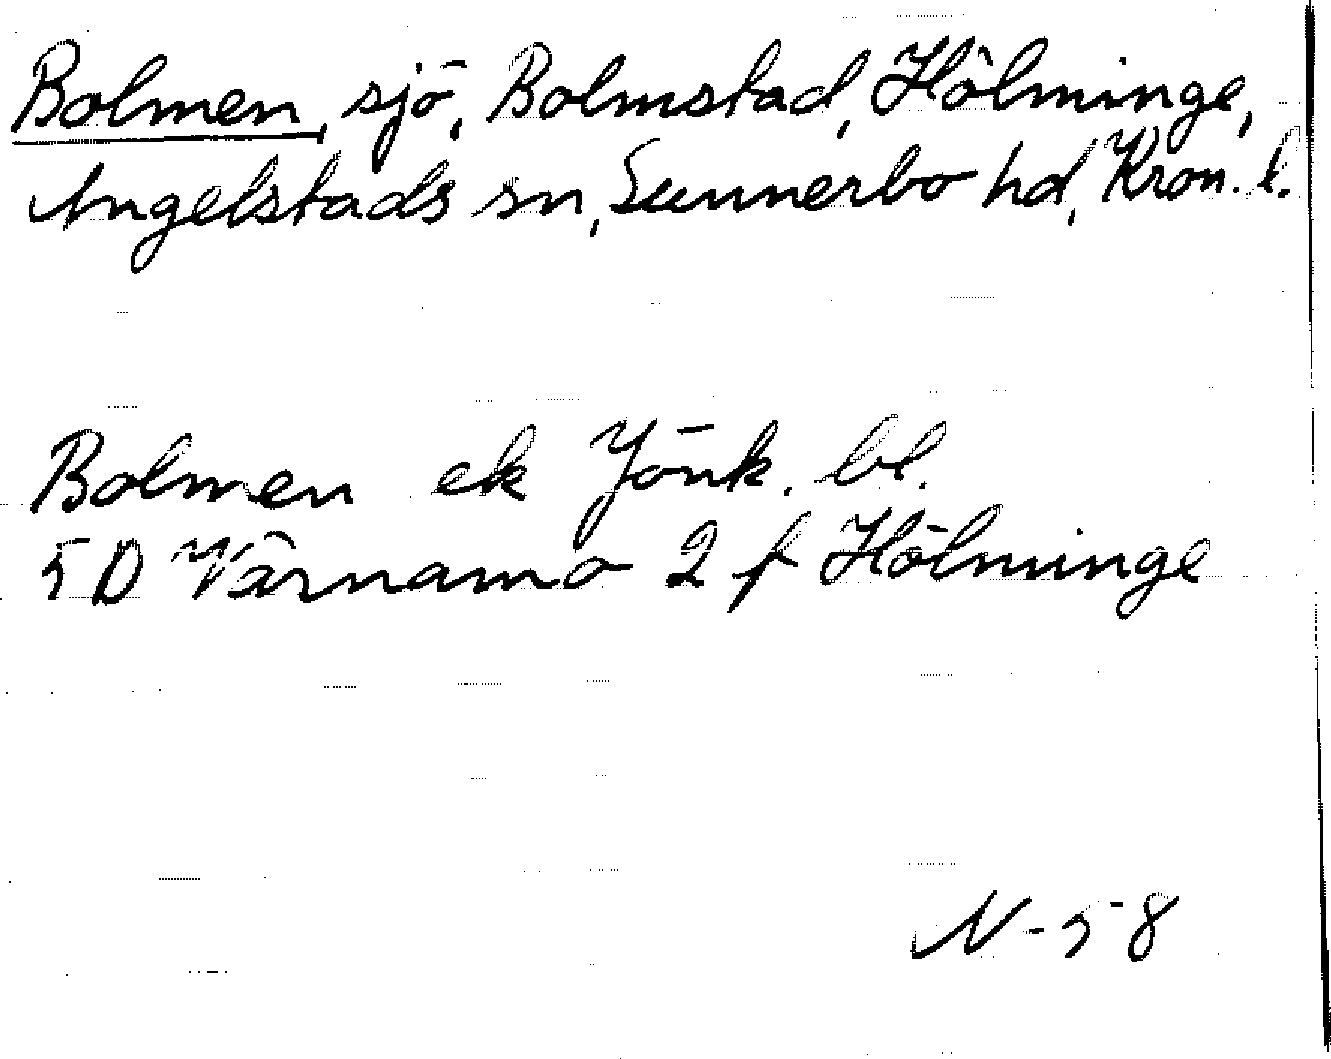 Bolmen, sjö, Bolmstad, Hölminge,
Angelstads sn, Sunnerbo hd, Kron. l.
Bolmen ek Jönk. bl.
5D Värnamo 2 f Hölminge
N-58